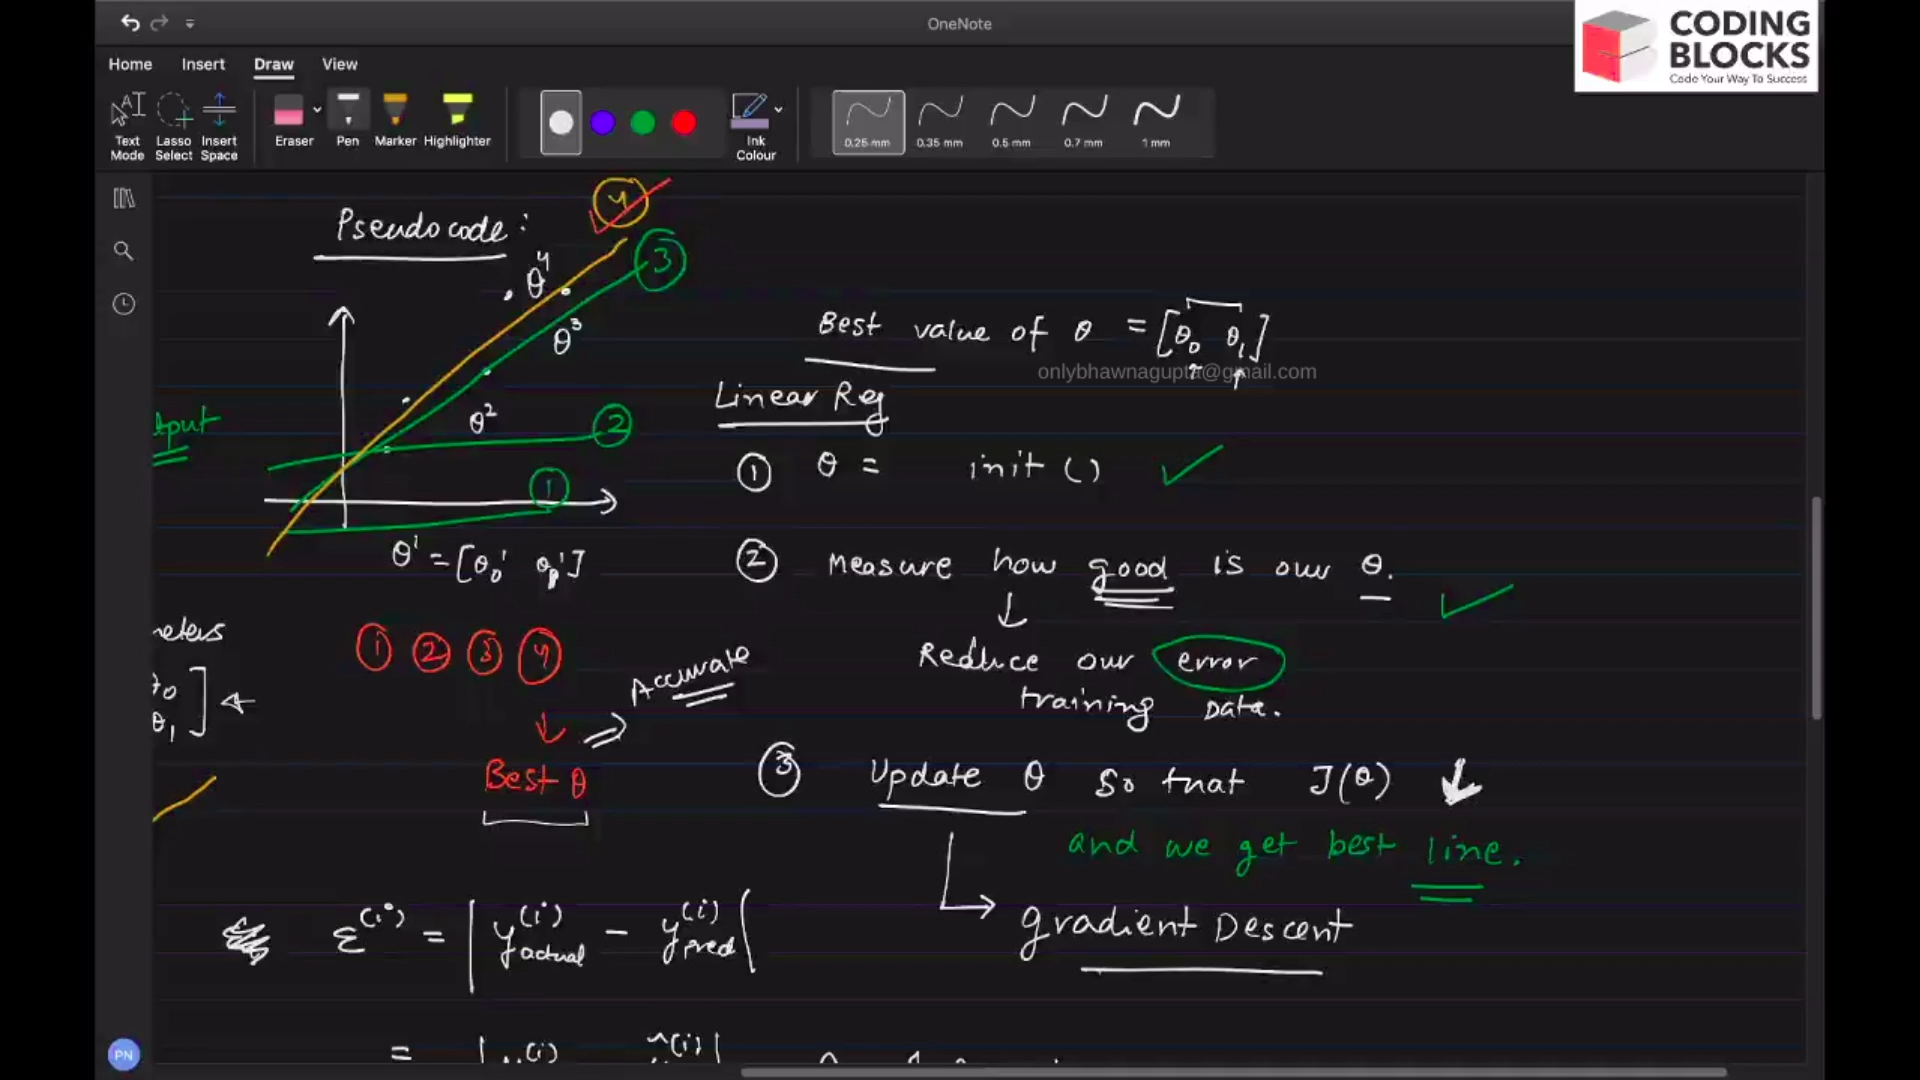 OneNote
CODING
BLOCKS
Code Your Way To Success
Home Insert Draw View
Text Mode
Lasso Select
Insert Space
Eraser
Pen
Marker
Highlighter
Ink Colour
0.25 mm
0.35 mm
0.5 mm
0.7 mm
1 mm
Pseudocode:
4
3
θ⁴
θ³
θ²
2
1
tput
θ¹ = [θ₀¹ θ₁¹]
Best value of θ = [θ₀ θ₁]
onlybhawnagupta@gmail.com
Linear Reg
① θ = init ()
② Measure how good is our θ.
Reduce our error
training data.
③ Update θ so that J(θ) ↓
and we get best line.
gradient Descent
meters
θ₁]
① ② ③ ④
Accurate
Best θ
ε⁽ⁱ⁾ = | y⁽ⁱ⁾actual − y⁽ⁱ⁾pred |
PN